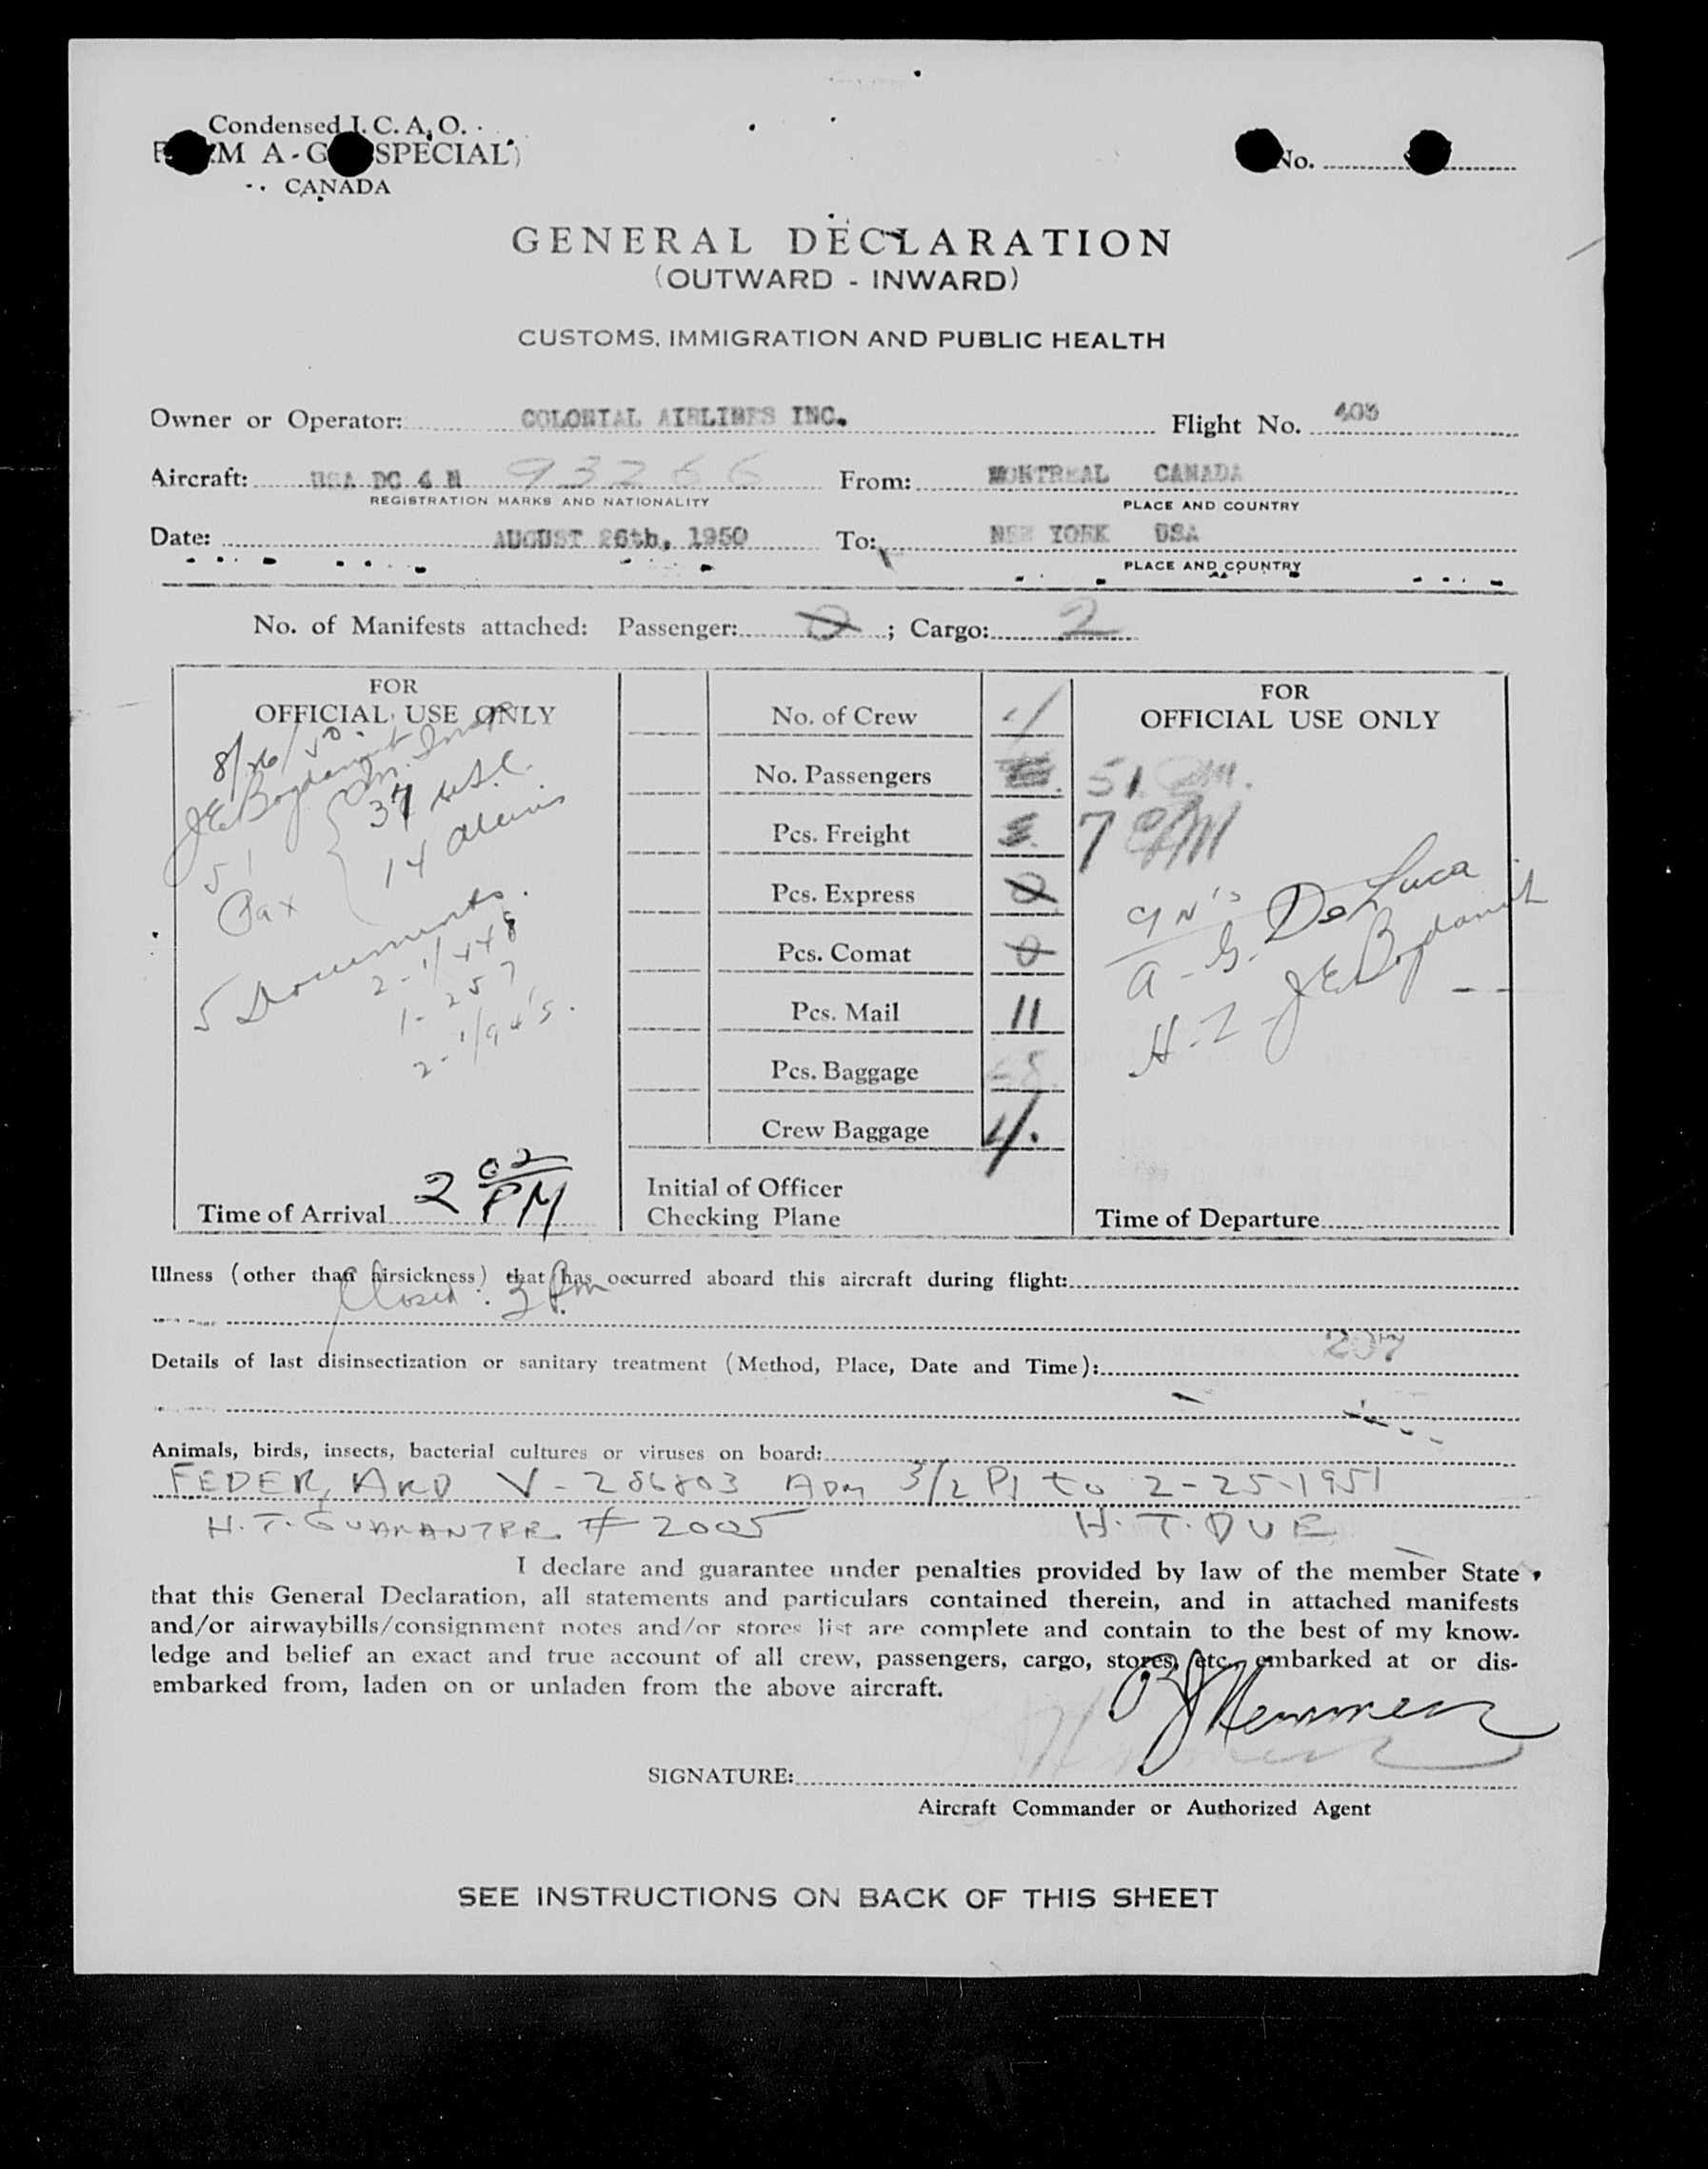 Condensed I. C. A. O.
M A-G SPECIAL)
CANADA
No.
GENERAL DECLARATION
(OUTWARD - INWARD)
CUSTOMS, IMMIGRATION AND PUBLIC HEALTH
Owner or Operator: COLONIAL AIRLINES INC. Flight No. 403
Aircraft: USA DC 4 N 93266 From: MONTREAL CANADA
REGISTRATION MARKS AND NATIONALITY PLACE AND COUNTRY
Date: AUGUST 26th, 1950 To: NEW YORK USA
PLACE AND COUNTRY
No. of Manifests attached: Passenger: 0 ; Cargo: 2
FOR
OFFICIAL USE ONLY
8/26/50
J E Bogdanich Im. Insp
51 Pax
37 USC
14 Aliens
5 Documents.
2-1/448
1-257
2-1/94's.
Time of Arrival 2 02 PM
No. of Crew 4
No. Passengers
Pcs. Freight
Pcs. Express 0
Pcs. Comat 0
Pcs. Mail 11
Pcs. Baggage
Crew Baggage 4.
Initial of Officer
Checking Plane
FOR
OFFICIAL USE ONLY
51
7
A-G- DeLuca
H-Z- J E Bogdanich
Time of Departure
Illness (other than airsickness) that has occurred aboard this aircraft during flight:
Closed. 3 Pm
Details of last disinsectization or sanitary treatment (Method, Place, Date and Time): 207
Animals, birds, insects, bacterial cultures or viruses on board:
FEDER, ARD V-286803 ADM 3/2 P1 to 2-25-1951
H.T. GUARANTEE # 2005 H.T. DUE
I declare and guarantee under penalties provided by law of the member State
that this General Declaration, all statements and particulars contained therein, and in attached manifests
and/or airwaybills/consignment notes and/or stores list are complete and contain to the best of my know-
ledge and belief an exact and true account of all crew, passengers, cargo, stores, etc., embarked at or dis-
embarked from, laden on or unladen from the above aircraft.
SIGNATURE:
Aircraft Commander or Authorized Agent
SEE INSTRUCTIONS ON BACK OF THIS SHEET